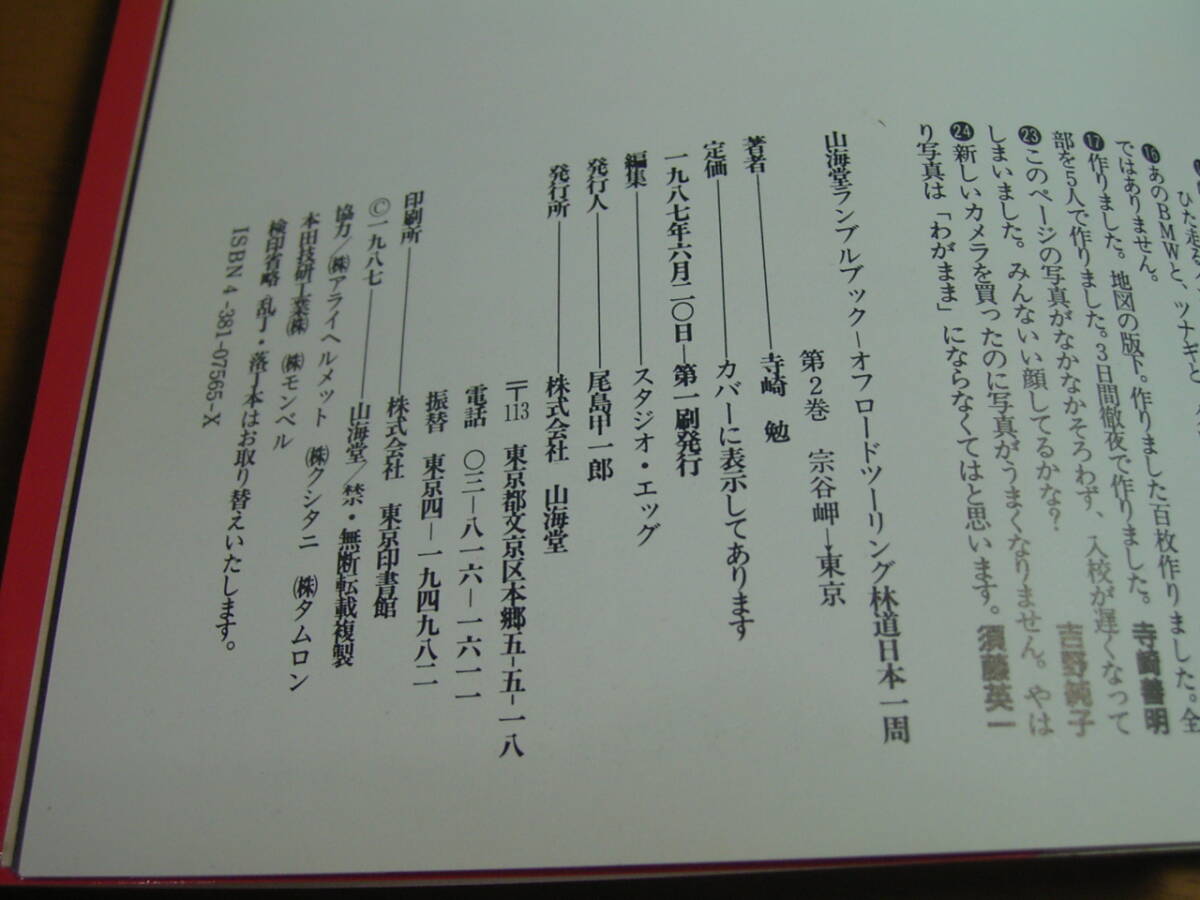 ひた走る
⓰あのBMWと、ツナギと
ではありません。
⓱作りました。地図の版下。作りました百枚作りました。全
部を5人で作りました。3日間徹夜で作りました。 寺崎善明
㉓このページの写真がなかなかそろわず、入校が遅くなって
しまいました。みんないい顔してるかな? 吉野純子
㉔新しいカメラを買ったのに写真がうまくなりません。やは
り写真は「わがまま」にならなくてはと思います。須藤英一
山海堂ランブルブック—オフロードツーリング林道日本一周
第2巻 宗谷岬→東京
著者——寺崎 勉
定価——カバーに表示してあります
一九八七年六月二〇日—第一刷発行
編集——スタジオ・エッグ
発行人——尾島甲一郎
発行所——株式会社 山海堂
〒113 東京都文京区本郷五-五-一八
電話 〇三—八一六—一六一一
振替 東京四—一九四九八二
印刷所——株式会社 東京印書館
©一九八七——山海堂/禁・無断転載複製
協力/㈱アライヘルメット ㈱クシタニ ㈱タムロン
本田技研工業㈱ ㈱モンベル
検印省略 乱丁・落丁本はお取り替えいたします。
ISBN4-381-07565-X